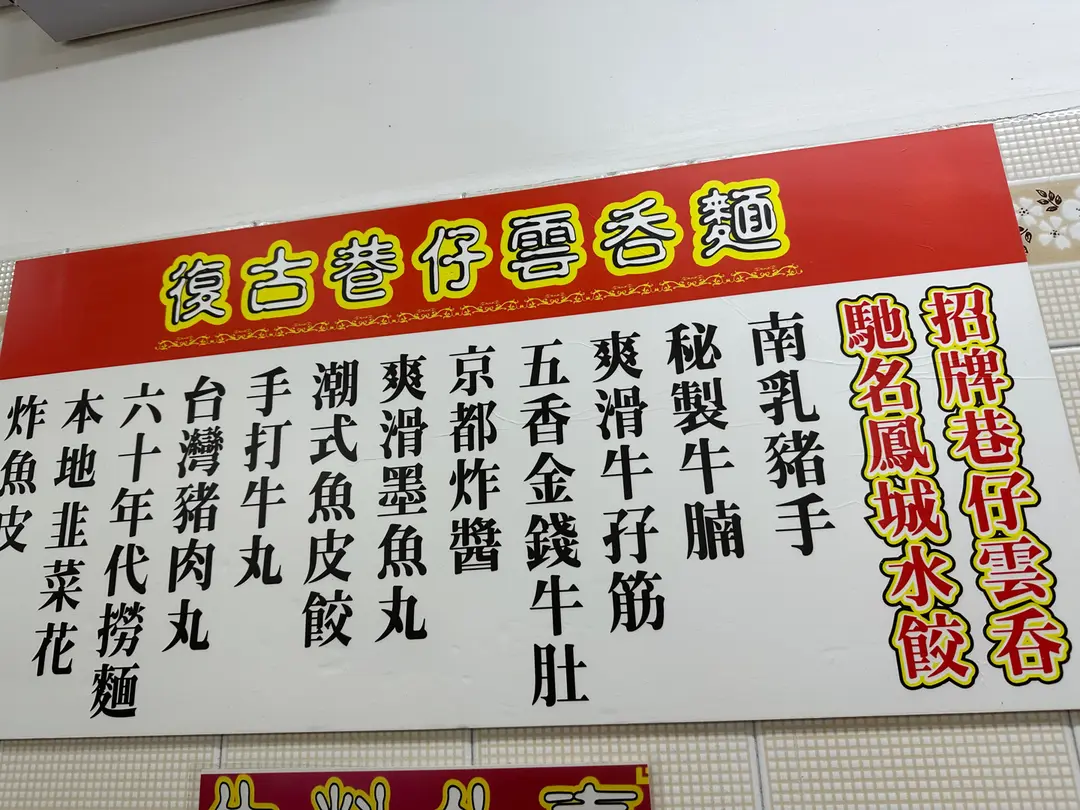 復古巷仔雲吞麵
招牌巷仔雲吞
馳名鳳城水餃
南乳豬手
秘製牛腩
爽滑牛孖筋
五香金錢牛肚
京都炸醬
爽滑墨魚丸
潮式魚皮餃
手打牛丸
台灣豬肉丸
六十年代撈麵
本地韭菜花
炸魚皮